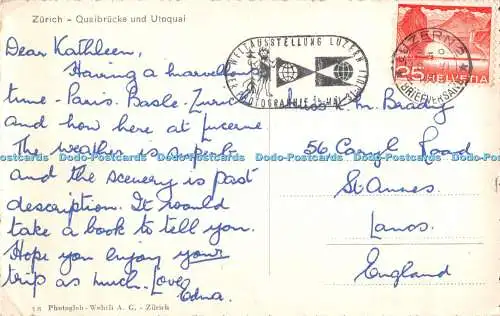 Zürich - Quaibrücke und Utoquai
Dear Kathleen,
Having a marvellous
time - Paris. Basle. Zurich
and now here at Lucerne
The weather is superb
and the scenery is past
description. It would
take a book to tell you.
Hope you enjoy your
trip as much. Love,
Edna.
WELTAUSSTELLUNG LUZERN
DER PHOTOGRAPHIE 15. MAI
LUZERN 2
BRIEFVERSAND
25 HELVETIA
Miss K. M. Brady
56 Caryl Road
St. Annes.
Lancs.
England
Photoglob-Wehrli A. G. - Zürich
Postcards Postcards Postcards Postcards Postcards Postcards
www.the-postcards.com